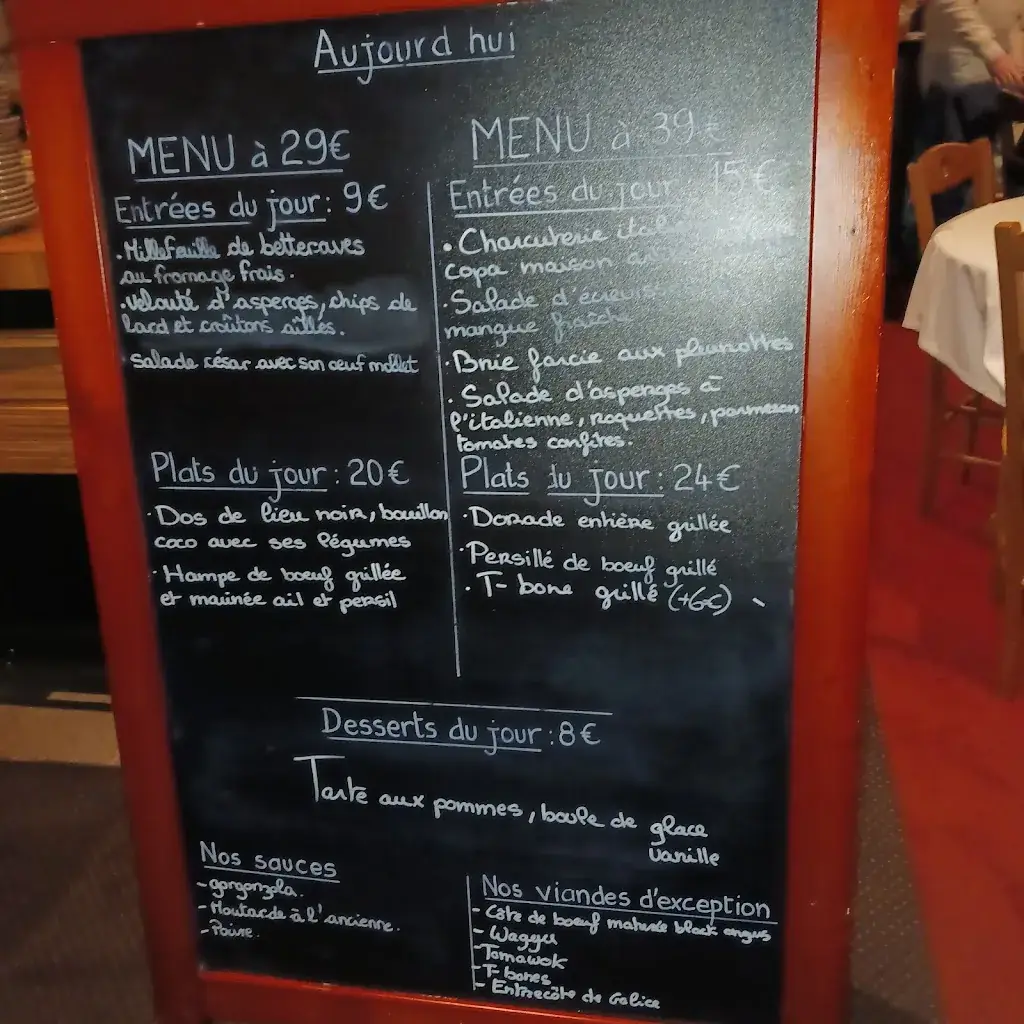 Aujourd hui
MENU à 29€
Entrées du jour: 9€
.Millefeuille de betteraves
au fromage frais.
.velouté d'asperges, chips de
lard et croûtons aillés.
. Salade césar avec son oeuf mollet
Plats du jour: 20€
.Dos de lieu noir, bouillon
coco avec ses légumes
.Hampe de boeuf grillée
et mainée ail et persil
MENU à 39€
Entrées du jour 15€
.Charcuterie
copa maison
.Salade
mangue fraîche
.Brie farcie aux pleurottes
.Salade d'asperges à
l'italienne, roquettes, parmesan
tomates confites.
Plats du jour: 24€
.Dorade entière grillée
.Persillé de boeuf grillé
.T-bone grillé (+6€)
Desserts du jour:8€
Tarte aux pommes, boule de glace
vanille
Nos sauces
-gorgonzola.
-Moutarde à l'ancienne.
-Poivre.
Nos viandes d'exception
- Côte de boeuf maturée black angus
- Waggu
-Tomawok
-T-bones
- Entrecôte de Galice